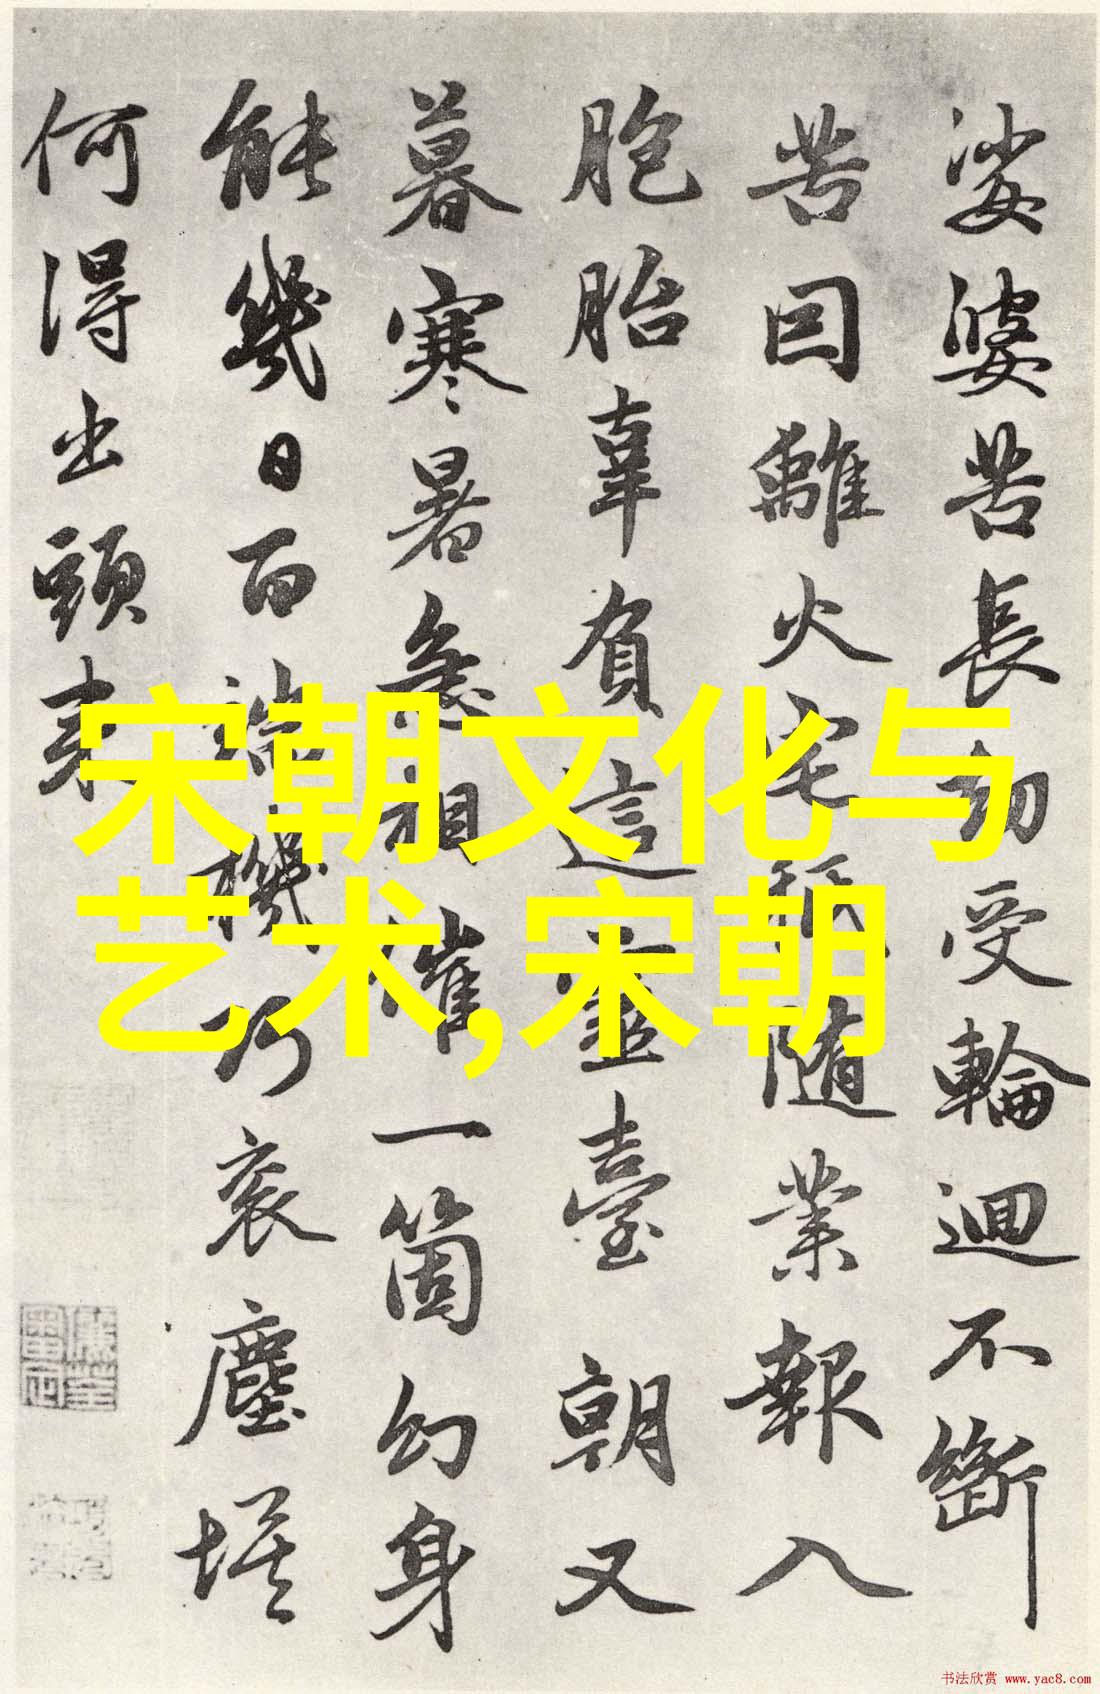 娑婆苦長劫受輪迴不斷
苦因離火宅秪随業報入
胞胎辜負這靈臺朝又
暮寒暑急相催一箇幻身
能幾日百端機巧衮塵埃
何得出頭来
宋朝文化与
艺术,宋朝
书法欣赏 www.yac8.com